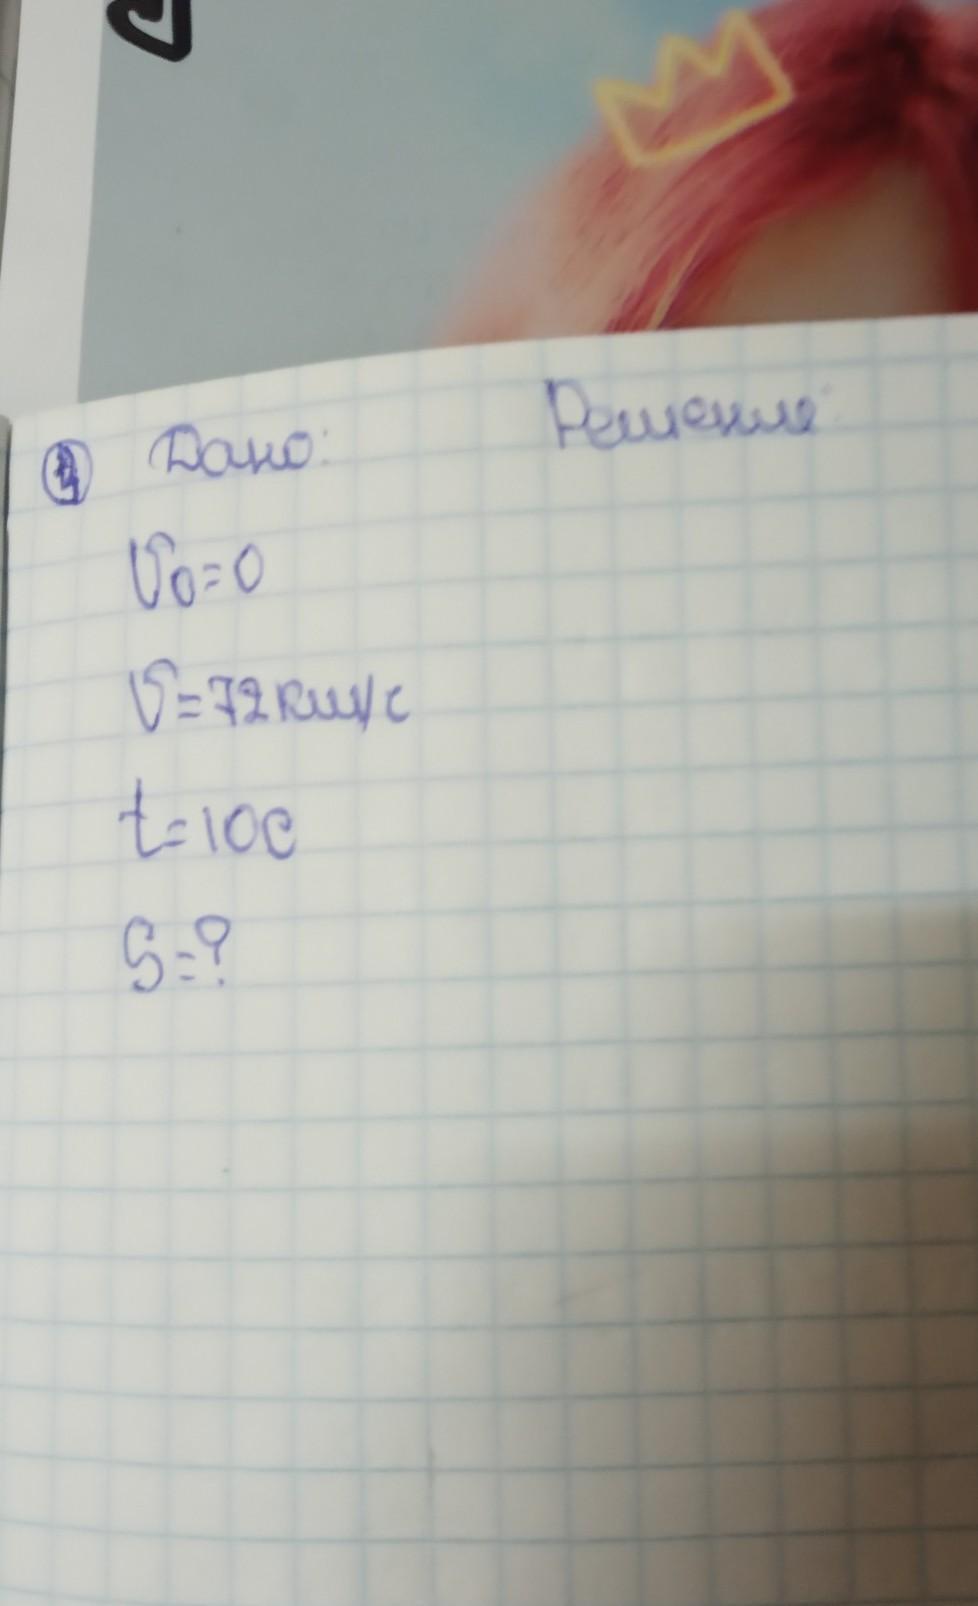 Дано:
Решение:
V₀=0
V=72км/с
t=10с
S=?